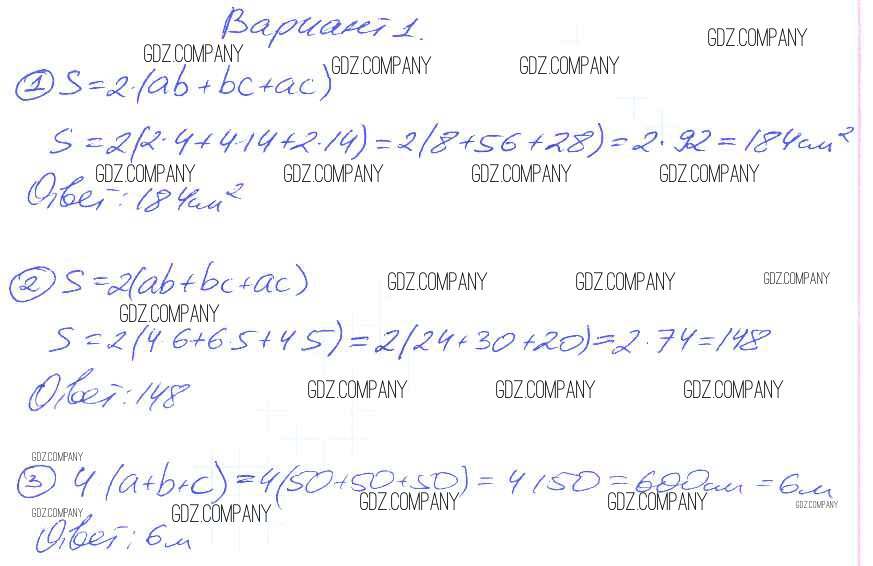 Вариант 1.
GDZ.COMPANY GDZ.COMPANY GDZ.COMPANY GDZ.COMPANY
① S=2·(ab+bc+ac)
S=2(2·4+4·14+2·14)=2(8+56+28)=2·92=184см²
GDZ.COMPANY GDZ.COMPANY GDZ.COMPANY GDZ.COMPANY
Ответ: 184см²
② S=2(ab+bc+ac) GDZ.COMPANY GDZ.COMPANY GDZ.COMPANY
GDZ.COMPANY
S=2(4 6+6 5+4 5)=2(24+30+20)=2·74=148
Ответ: 148 GDZ.COMPANY GDZ.COMPANY GDZ.COMPANY
GDZ.COMPANY
③ 4 (a+b+c)=4(50+50+50)=4 150=600см=6м
GDZ.COMPANY GDZ.COMPANY GDZ.COMPANY GDZ.COMPANY GDZ.COMPANY
Ответ: 6м